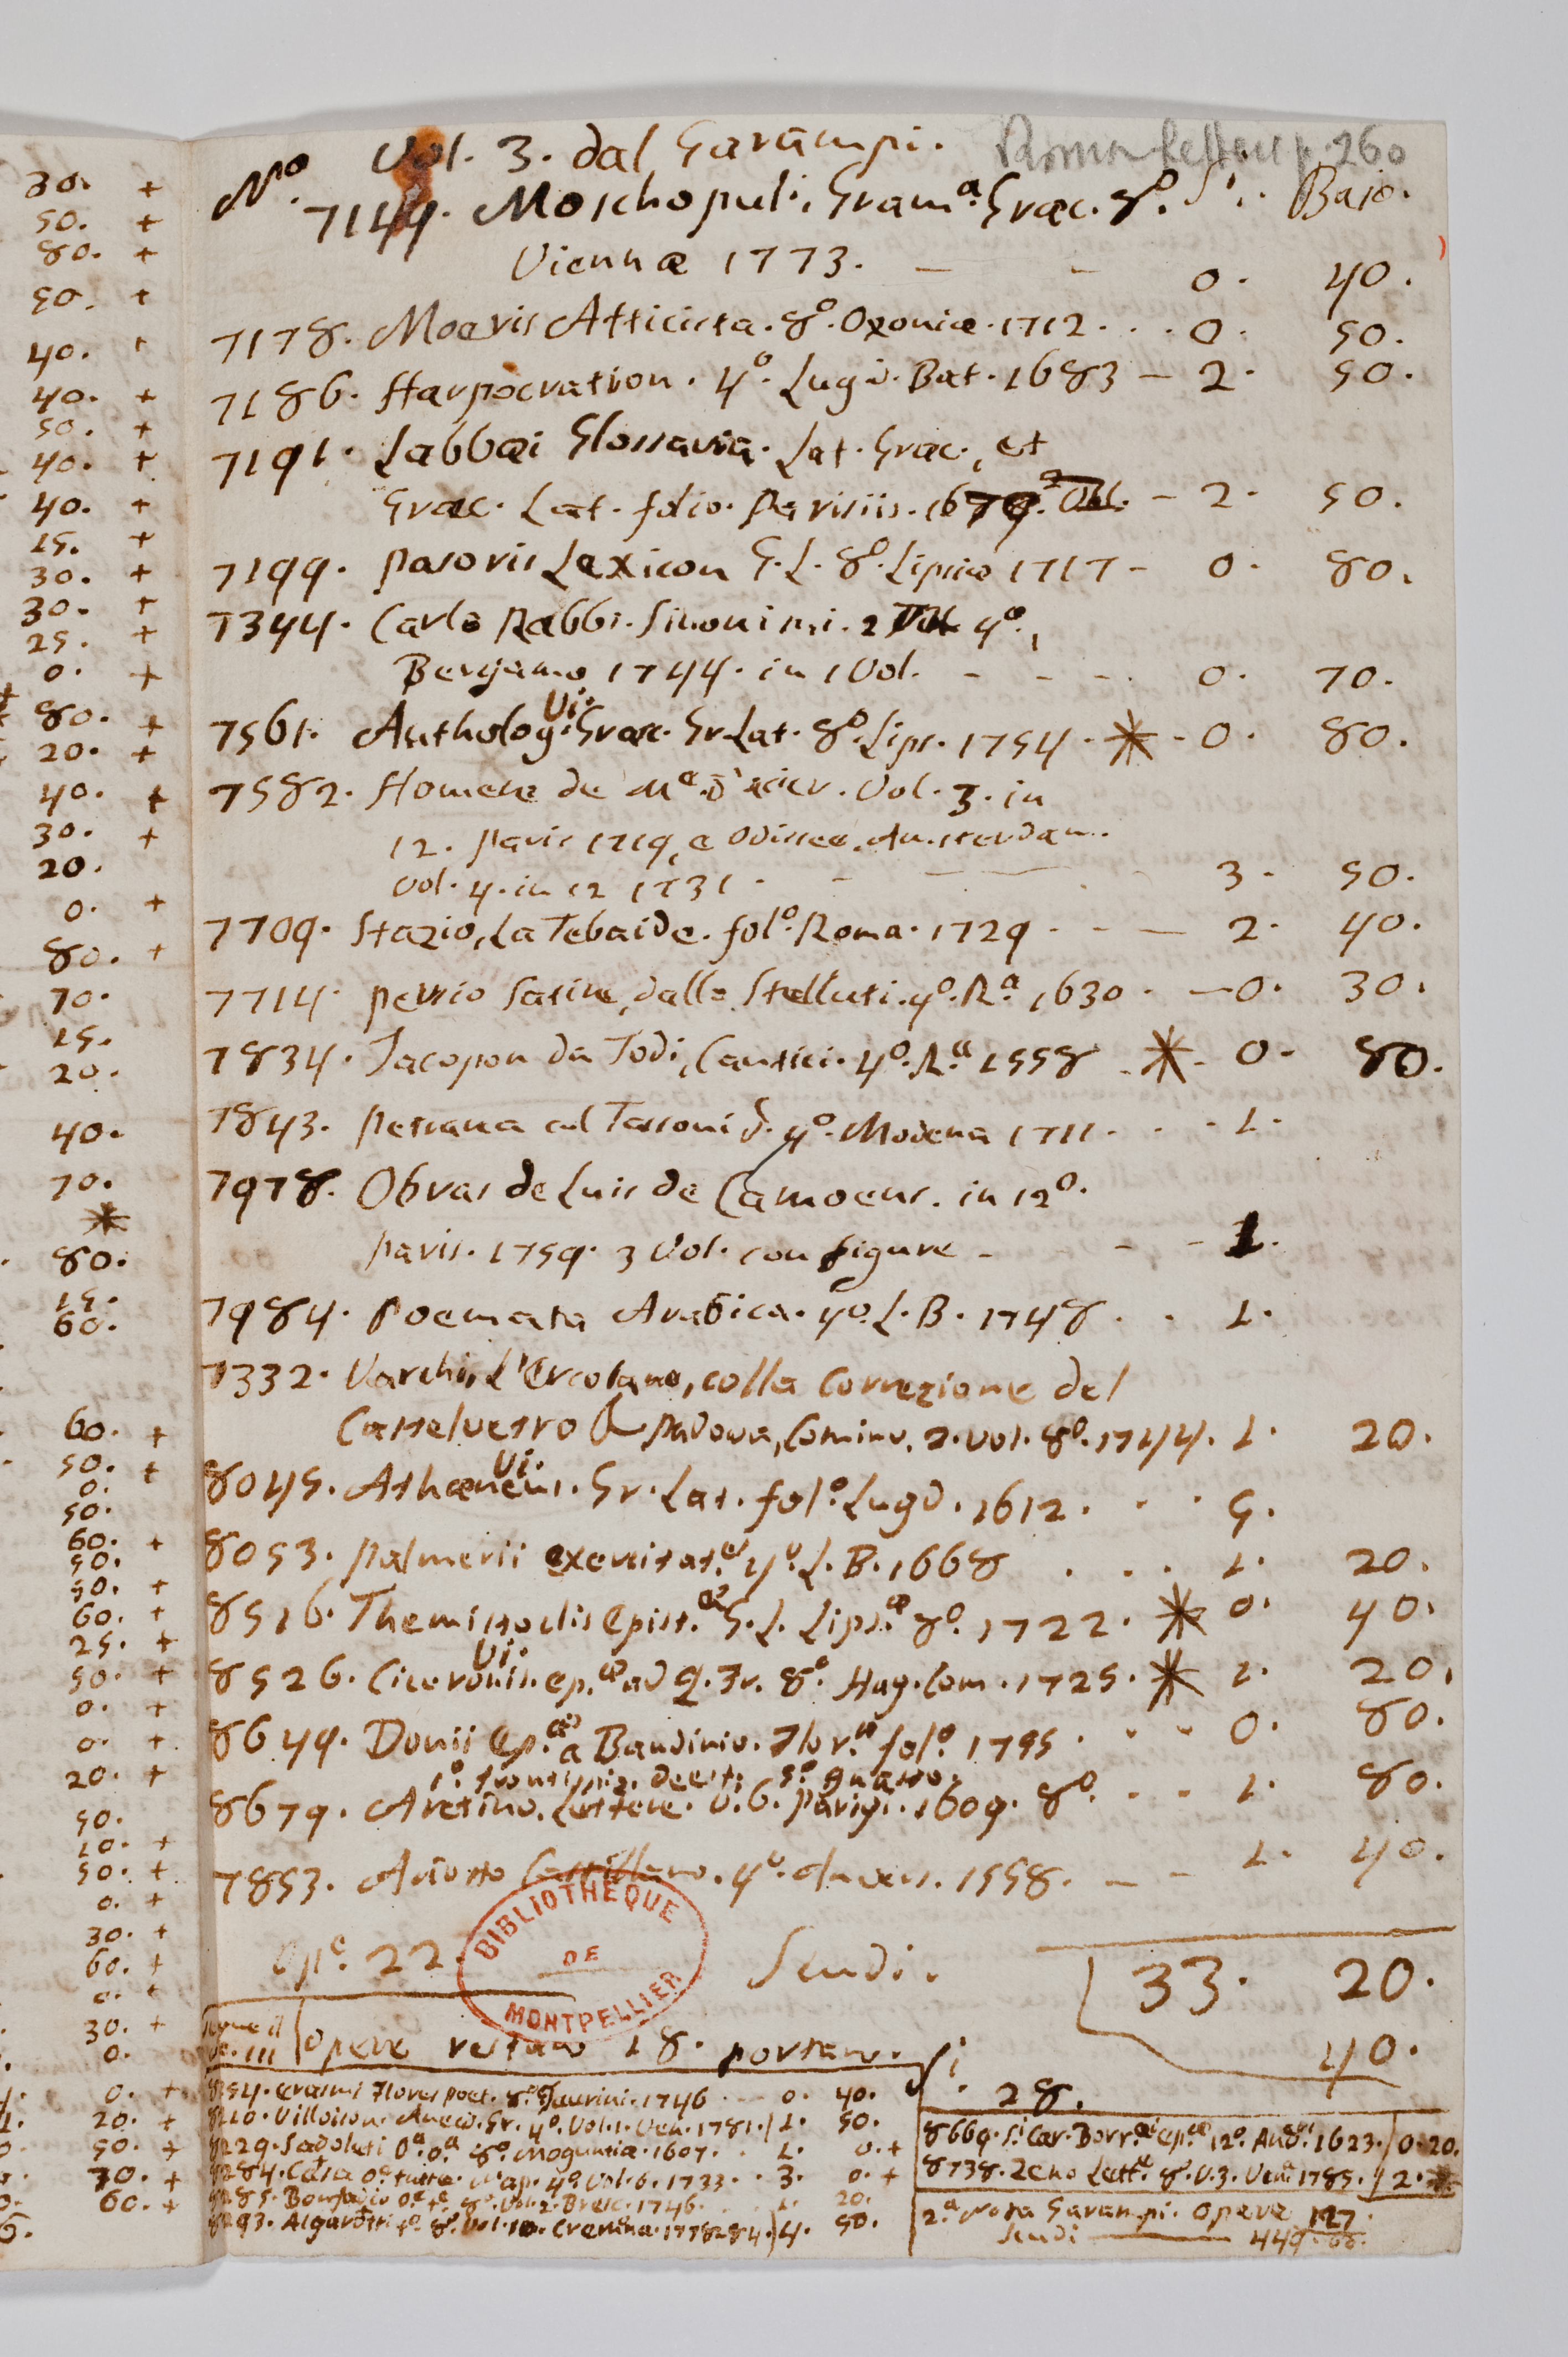 30. +
50. +
80. +
50. +
40. +
40. +
50. +
40. +
40. +
15. +
30. +
30. +
25. +
0. +
80. +
20. +
40. +
30. +
20.
0. +
80. +
70.
15.
20.
40.
70.
*
80.
15.
60.
60. +
50. +
0.
50.
60. +
50.
50. +
60. +
25. +
50. +
0. +
0. +
20. +
50.
10. +
50. +
0. +
30. +
60. +
0. +
30. +
0.
0. +
20. +
50. +
70. +
60. +
Vol. 3. dal Garampi. p. 260
N.º 7149. Moschopuli, Gram.ª Græc. 8.º S'. Bajo.
Viennæ 1773. — - 0. 40.
7178. Moeris Atticista. 8.º Oxoniæ. 1712. . . 0. 50.
7186. Harpocration. 4.º Lugd. Bat. 1683 — 2. 50.
7191. Labbæi Glossaria. Lat. Græc., et
Græc. Lat. folio. Parisiis. 1679. — 2. 50.
7199. Pasoris Lexicon G. L. 8.º Lipsiæ 1717 - 0. 80.
7344. Carlo Rabbi. Sinonimi. 2 4.º,
Bergamo 1744. in 1 Vol. - - - 0. 70.
7561. Antholog. Vi. Græc. Gr. Lat. 8.º Lips. 1754. * - 0. 80.
7582. Homere de M.e D'acier. Vol. 3. in
12. Paris 1719, e Odissee, Amsterdam.
Vol. 4. in 12 1731. - — 3. 50.
7709. Stazio, La Tebaide. fol.º Roma. 1729 - - — 2. 40.
7714. Persio Satire, dallo Stelluti. 4.º R.ª 1630. — 0. 30.
7834. Jacopon da Todi, Cantici. 4.º R.ª 1558 - * - 0. 80.
7843. Petrarca col Tassoni &. 4.º Modena 1711. . . 1.
7978. Obras de Luis de Camoens. in 12º.
Paris. 1759. 3 Vol. con figure - - - 1.
7984. Poemata Arabica. 4º. L. B. 1748. . . 1.
7332. Varchi, L'Ercolano, colla Correzione del
Castelvetro & Padova, Comino, 2. vol. 8º. 1744. 1. 20.
8045. Athæneus. Vi. Gr. Lat. fol.º Lugd. 1612. . . 5.
8053. Palmerii exercitat.e 4.º L. B. 1668 . . . 1. 20.
8516. Themistoclis Epist.æ G. L. Lips.æ 8º. 1722. * 0. 40.
8526. Ciceronis. Vi. ep.æ ad Q. Fr. 8.º Hag. Com. 1725. * 1. 20.
8649. Donii Ep.æ a Bandinio. Flor.æ fol.º 1755. . . 0. 80.
1.º frontispiz. deest; 5.º guasto.
8679. Aretino, Lettere. V. 6. Parigi. 1609. 8º. . . 1. 80.
7853. Ariosto Castillano. 4.º Anvers. 1558. — - 1. 40.
Op.e 22. Scudi. 33. 20.
BIBLIOTHEQUE DE MONTPELLIER
40.
Opere restano 18. portano. S'. 28.
8154. Erasmi Flores poet. 8.º Taurini. 1746 - - 0. 40.
8210. Villoison. Anecd. Gr. 4.º Vol. 1. Ven. 1781. 1. 50.
8229. Sadoleti O.ª o.ª 8.º Moguntiæ. 1607. . 1. 0. +
8284. Casa O.e tutte. Nap. 4.º Vol. 6. 1733. . 3. 0. +
8285. Bonfadio O.e t.e 8.º Vol. 2. Bresc. 1746. . 1. 20.
8293. Algarotti t.e 8.º Vol. 10. Cremona. 1778-84. 4. 50.
8669. S.i Car. Borr.æi ep.æ 12º. 1623. 0. 20.
8738. Zeno Lett.e 8.º V. 3. Ven.a 1785. 2.
2.ª Nota Garampi. Opere 127.
Scudi — 449.